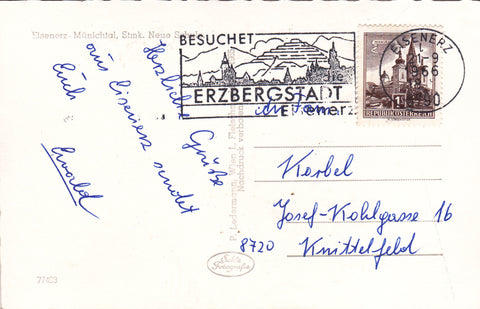 Eisenerz-Münichtal, Stmk. Neue
BESUCHET
die
ERZBERGSTADT
Eisenerz
EISENERZ
1-9
1966
8790
REPUBLIK ÖSTERREICH
Herzliche Grüße
aus Eisenerz sendet
Euch
Ewald
P. Ledermann, Wien I,
Nachdruck verboten
Korbel
Josef-Kohlgasse 16
8720 Knittelfeld
Echte
Fotografie
77403